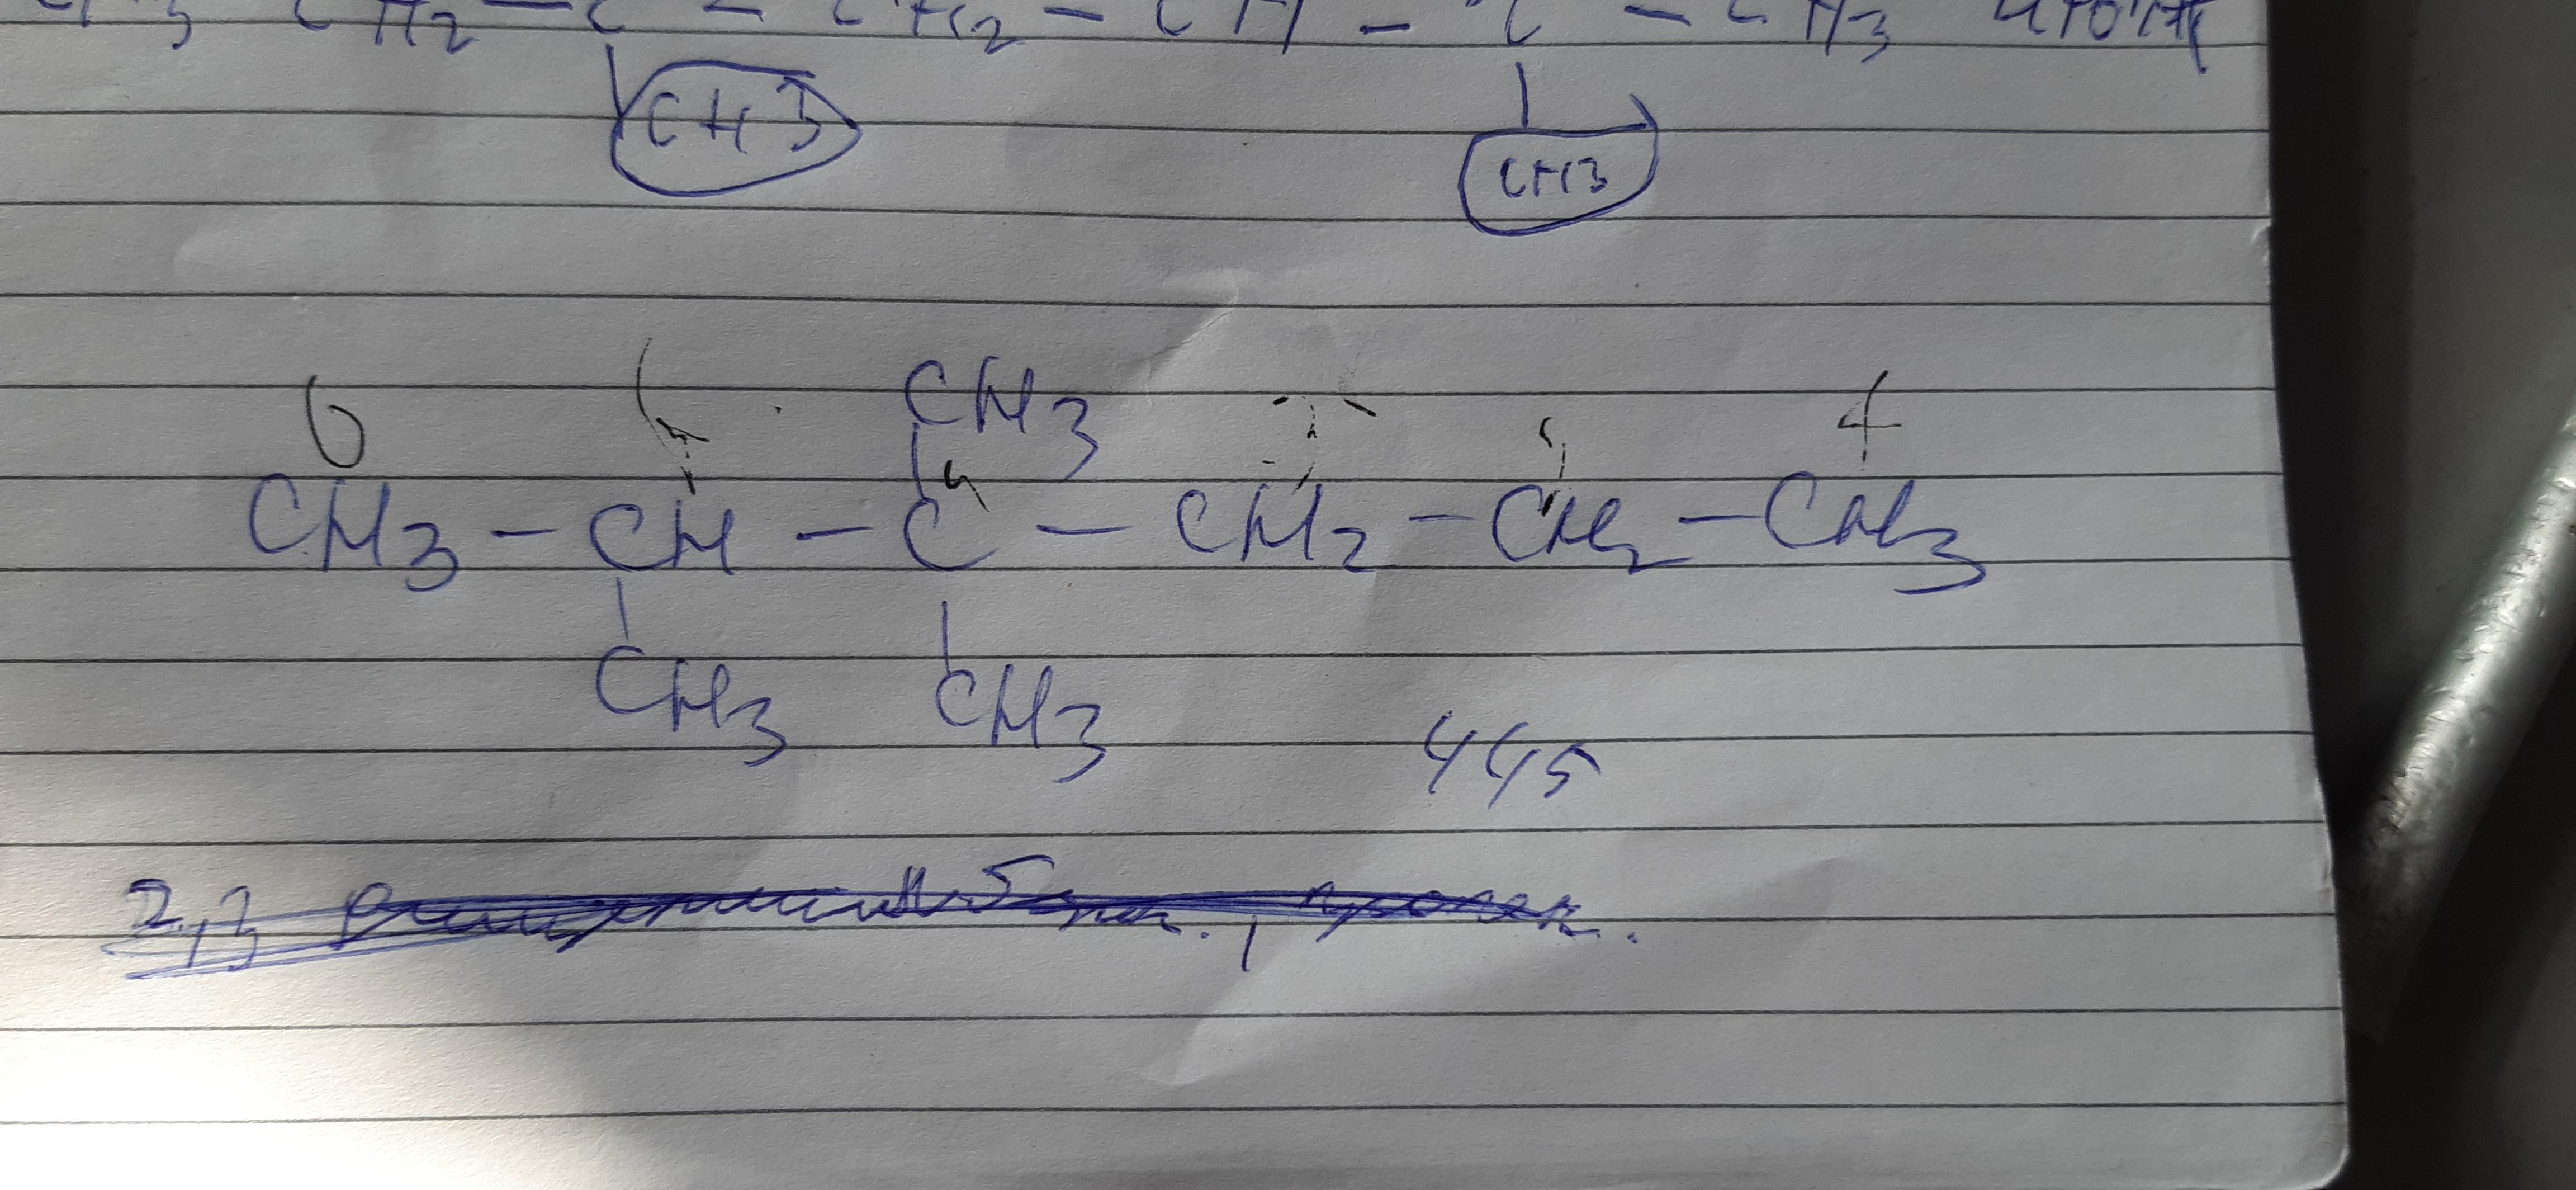 CH2 – C – CH2 – CH – C – CH3
CH3 CH3
CH3
6 5 4 3
CH3 – CH – C – CH2 – CH2 – CH3
CH3 CH3
445
2,3